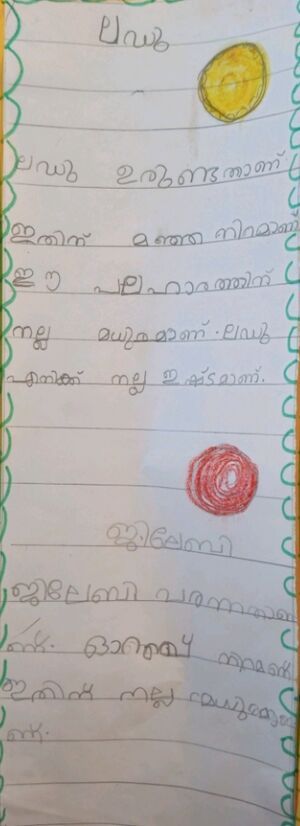 ലഡു
ലഡു ഉരുണ്ടതാണ്.
ഇതിന് മഞ്ഞ നിറമാണ്
ഈ പലഹാരത്തിന്
നല്ല മധുരമാണ്. ലഡു
എനിക്ക് നല്ല ഇഷ്ടമാണ്.
ജിലേബി
ജിലേബി പരന്നതാണ
ണ്. ഓറഞ്ച് നിറമണ്
ഇതിന് നല്ല മധുരമുണ
ണ്.